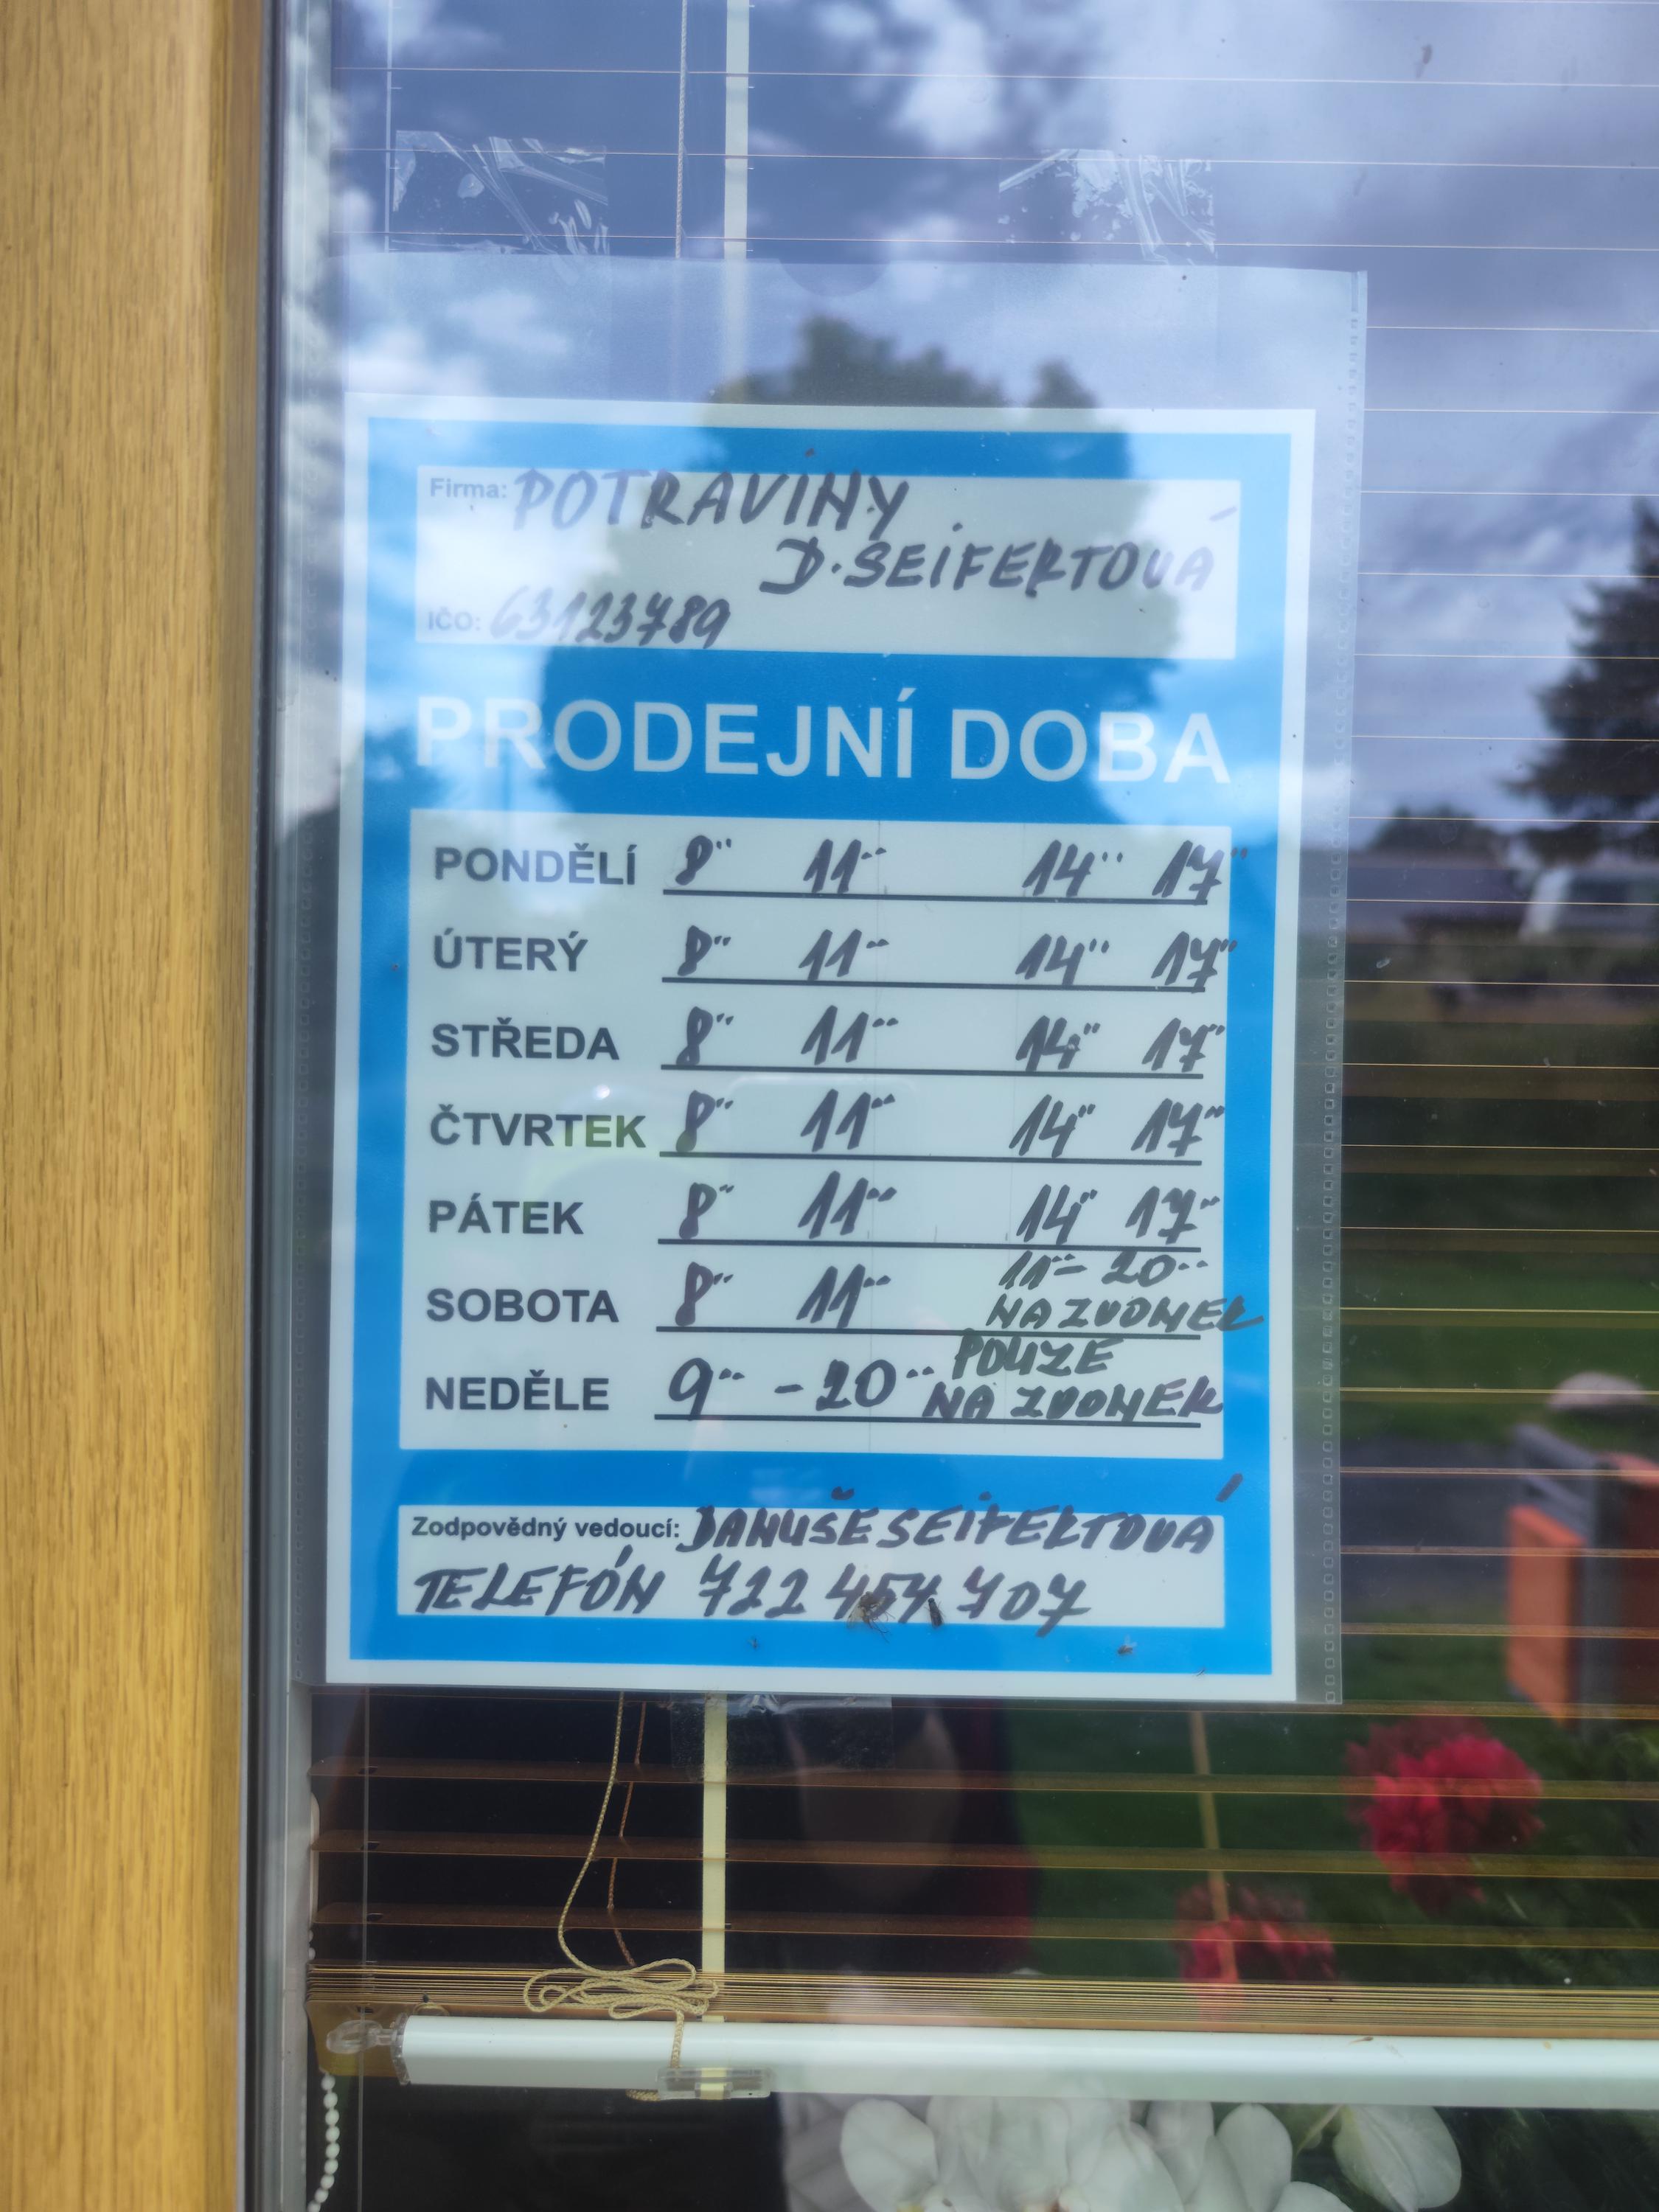 Firma: POTRAVINY
D. SEIFERTOVÁ
IČO: 63123789
PRODEJNÍ DOBA
PONDĚLÍ 8" 11" 14" 17"
ÚTERÝ 8" 11" 14" 17"
STŘEDA 8" 11" 14" 17"
ČTVRTEK 8" 11" 14" 17"
PÁTEK 8" 11" 14" 17"
SOBOTA 8" 11" 11" - 20" NA ZVONEK
NEDĚLE 9" - 20" POUZE NA ZVONEK
Zodpovědný vedoucí: DANUŠE SEIFERTOVÁ
TELEFÓN 722 454 707